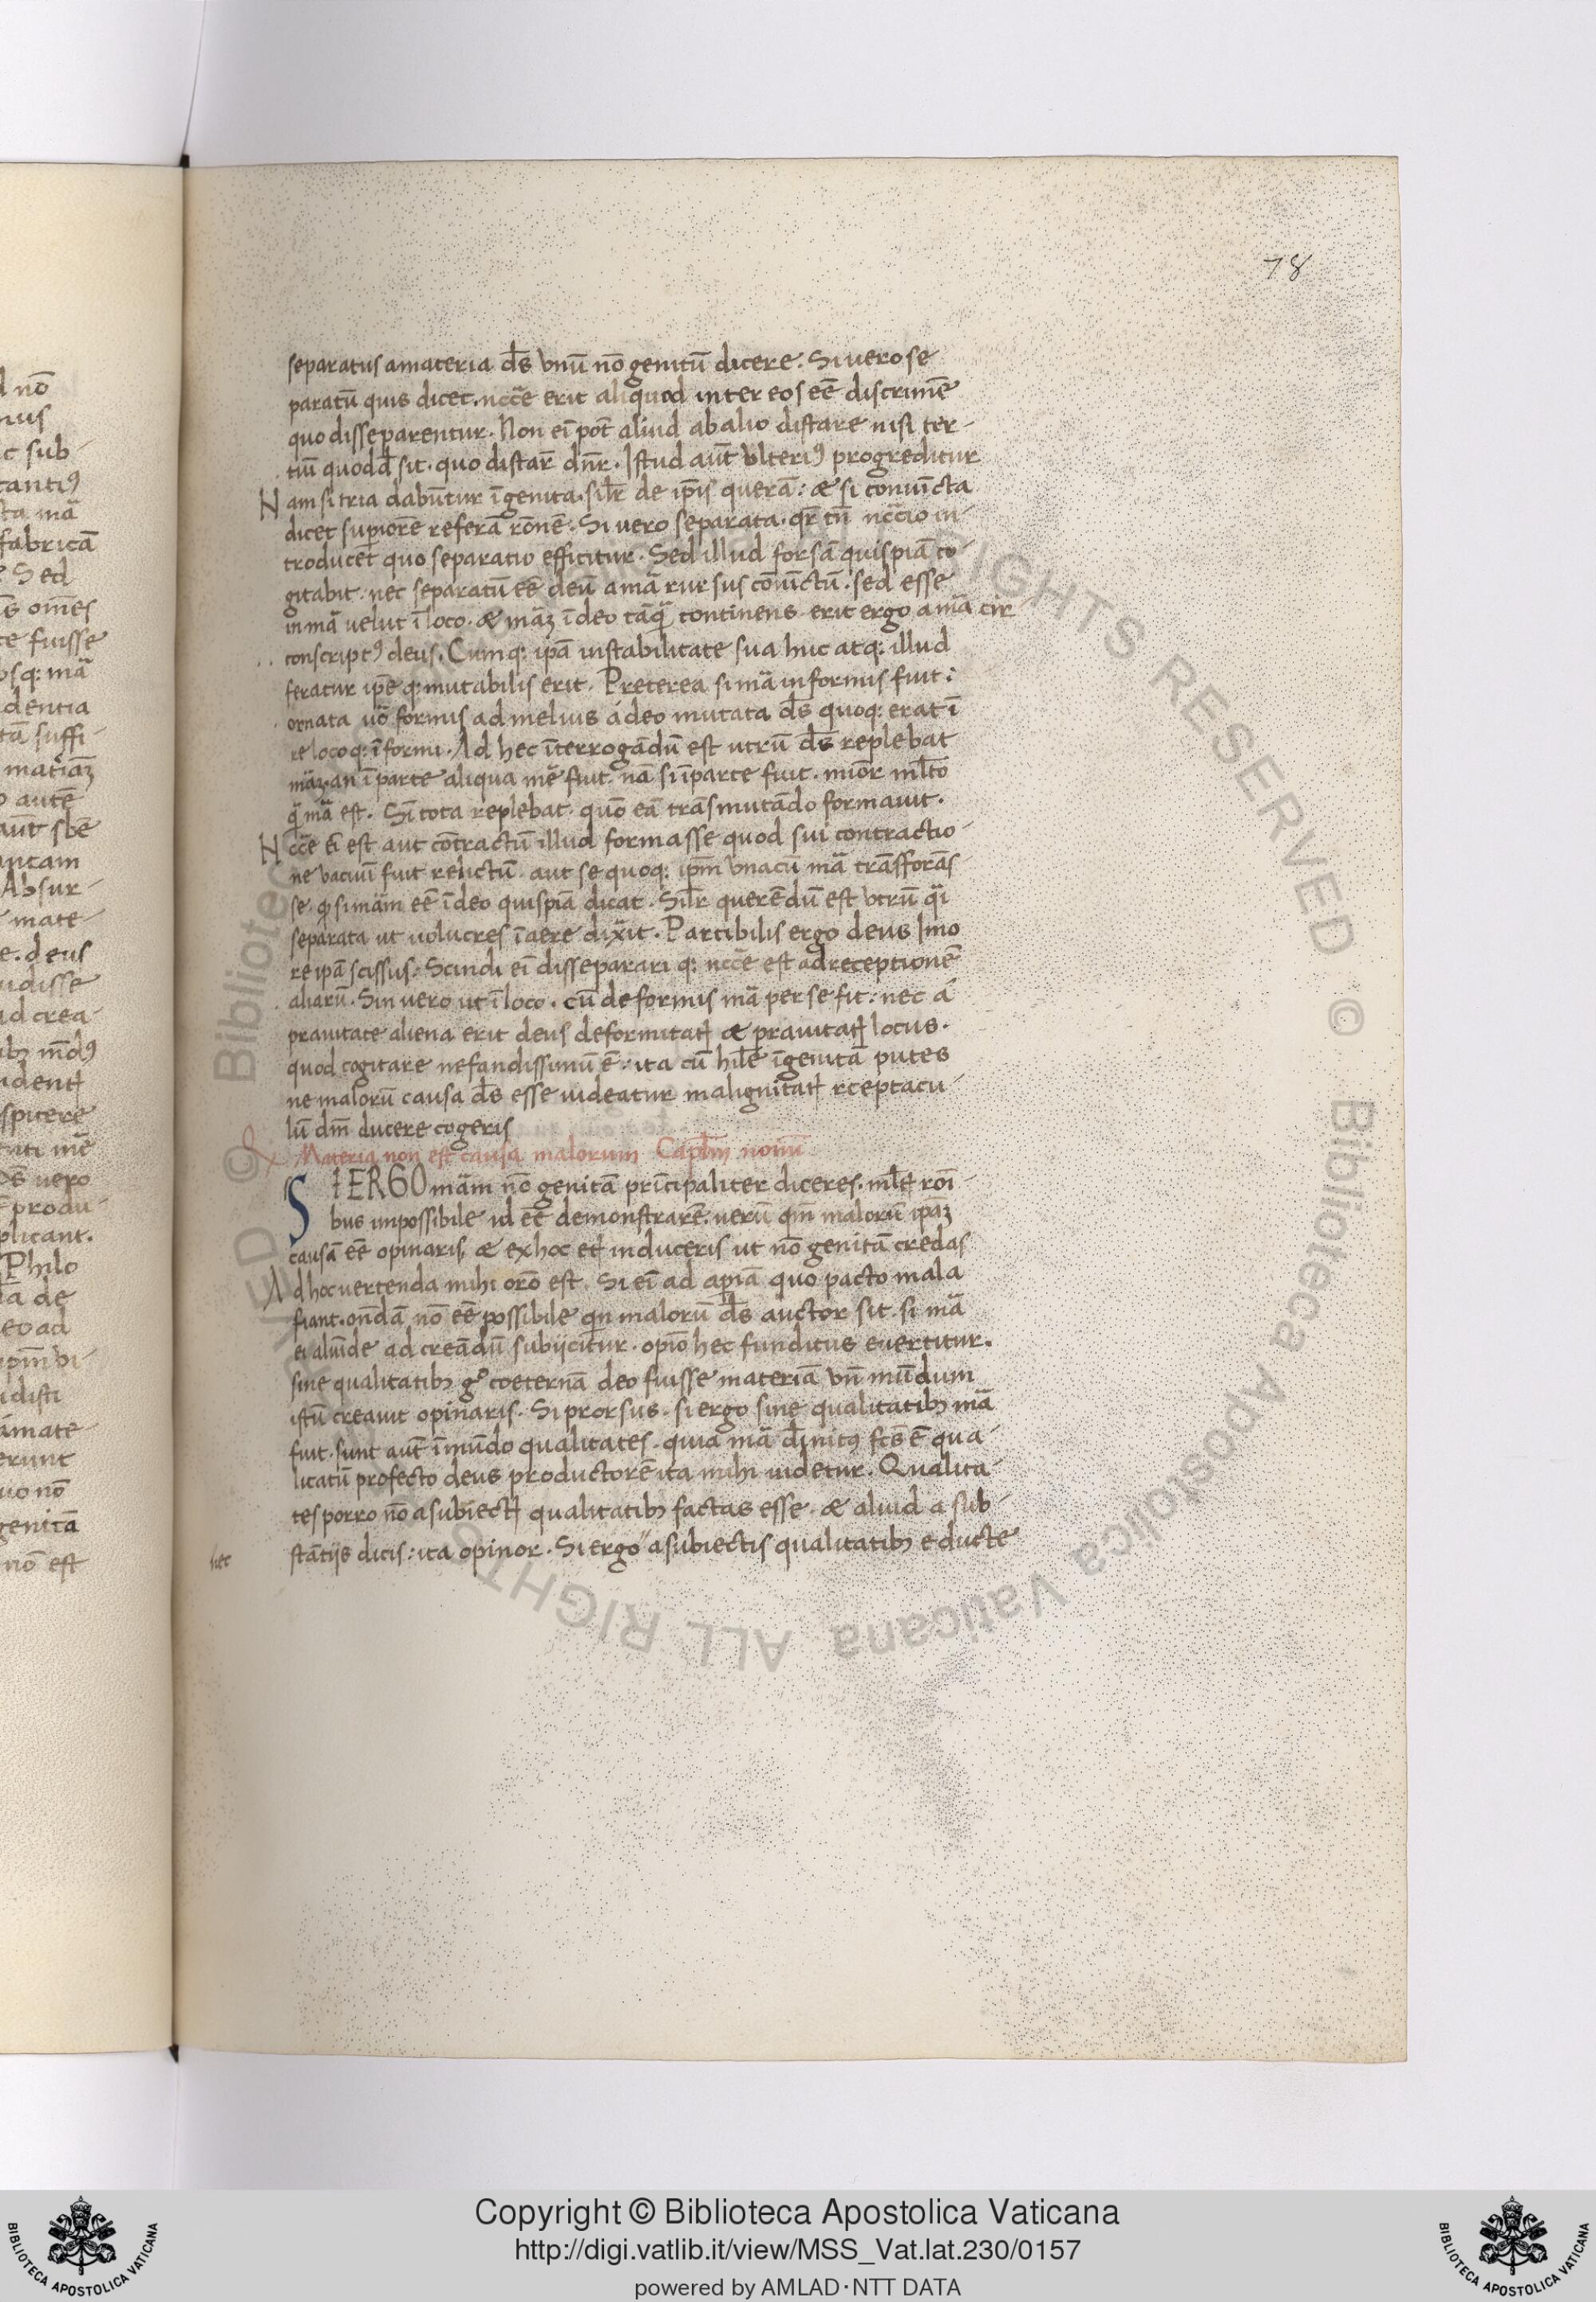 78
separatus a materia ds̄ vnū nō genitū dicere. Si vero se
paratū quis dicet. nccē erit aliquod inter eos eē discrimē
quo disseparentur. Non eī pōt aliud ab alio distare nisi ter-
tiū quodd̄ sit. quo distar̄ dn̄r. Istud aūt vlteriꝰ progreditur
Nam si tria dabūtur īgenita. silr̄ de ip̄is querā: & si conuīcta
dicet supiorē referā rōnē. Si vero separata. qr̄ tn̄ in-
troducet quo separatio efficitur. Sed illud forsā quispiā co-
gitabit. nec separatū eē deū a mā rursus cōuīctū. sed esse
in mā velut ī loco. & māꝫ ī deo tāq̄ continens erit ergo a mā cir
conscriptꝰ deus. Cumq: ip̄a instabilitate sua huc atq: illud
feratur ip̄e q: mutabilis erit. Preterea si mā informis fuit:
ornata uō formis ad melius á deo mutata ds̄ quoq: erat ī
re locoq: īformi. Ad hec īterrogādū est utrū ds̄ replebat
māꝫ an ī parte aliqua mē fuit. nā si ī parte fuit. miōr ml̄to
q̄ mā est. Si tota replebat. quō eā trāsmutādo formauit.
Nccē eī est aut cōtractū illud formasse quod sui contractio-
ne vacuū fuit relictū. aut se quoq: ip̄m vnacū mā trāsforās-
se. si mām eē ī deo quispiā dicat. Silr̄ querēdū est vtrū q̄i
separata ut uolucres ī aere dixīt. Partibilis ergo deus Imo
re ip̄a scissus. Scindi eī disseparari q: nccē est ad receptionē
aliarū. Sin vero ut ī loco. cū deformis mā per se sit: nec á
prauitate aliena erit deus deformitatꝭ & prauitatꝭ locus.
quod cogitare nefandissimū ē: ita cū hile īgenitā putes
ne malorū causa ds̄ esse uideatur malignitatꝭ rceptacu-
lū dm̄ ducere cogeris
Materia non est causa malorum Caplm̄ nonū
SI ERGO mām nō genitā prīcipaliter diceres. ml̄tꝭ roī-
bus impossibile id eē demonstrarē. uerū qm̄ malorū ip̄aꝫ
causā eē opinaris, & ex hoc etꝭ induceris ut nō genitā credas
Ad hoc uertenda mihi orō est. Si eī ad apiā quo pacto mala
fiant. on̄dā nō eē possibile qn malorū ds̄ auctor sit. si mā
ei aliūde ad creādū subijcitur. opiō hec funditus euertitur.
sine qualitatibꝫ gº coeternā deo fuisse materiā vn̄ mūdum
istū creauit opinaris. Si prorsus. si ergo sine qualitatibꝫ mā
fuit. sunt aūt ī mūdo qualitates. quia mā diuinitꝰ fcs̄ ē qua-
litatū profecto deus productorē ita mihi uidetur. Qualita-
tes porro nō a subiectꝭ qualitatibꝫ factas esse. & aliud a sub-
stātijs dicis: ita opinor. Si ergo a subiectis qualitatibꝫ educte
hec
Copyright © Biblioteca Apostolica Vaticana
http://digi.vatlib.it/view/MSS_Vat.lat.230/0157
powered by AMLAD·NTT DATA